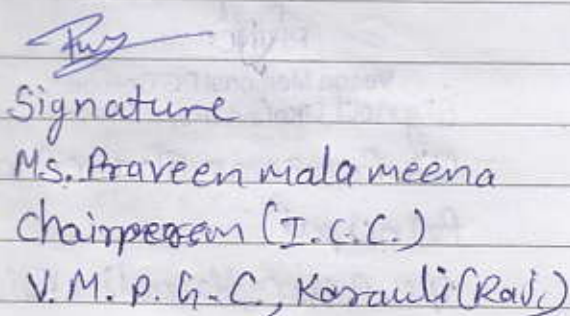 Signature
Ms. Praveen mala meena
Chairperson (I.C.C.)
V. M. P. G. C., Karauli (Raj.)